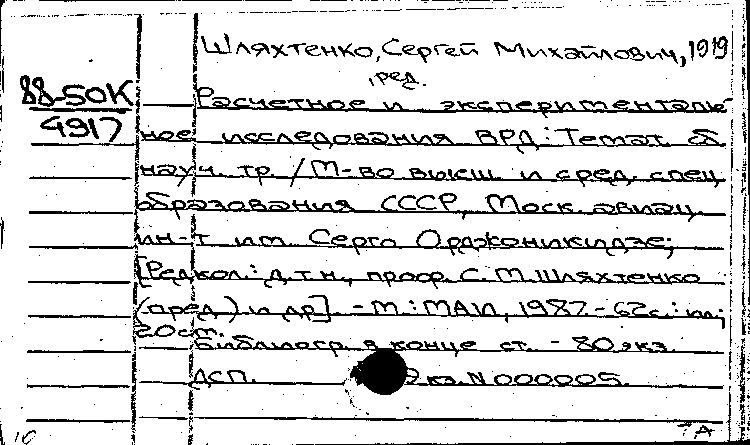 Шляхтенко, Сергей Михайлович, 1919
, ред.
88-50К
4917
Расчетное и эксперименталь-
ное исследования ВРД: Темат. сб.
науч. тр. / М-во высш. и сред. спец.
образования СССР, Моск. авиац.
ин-т им. Серго Орджоникидзе;
[Редкол.: д.т.н., проф. С. М. Шляхтенко
(пред.) и др]. - М.: МАИ, 1987. - 62 с.: ил;
20 см.
Библиогр. в конце ст. - 80 экз.
ДСП. Экз. N 000005.
10